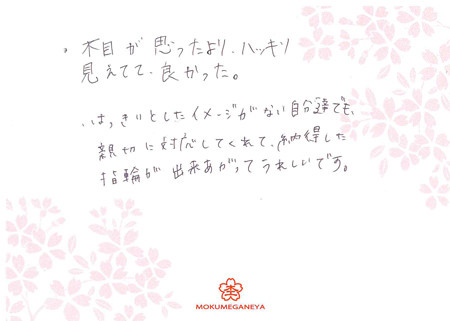 。木目が思ったより、ハッキリ
見えてて、良かった。
はっきりとしたイメージがない自分達でも、
親切に対応してくれて、納得した
指輪が出来あがってうれしいです。
MOKUMEGANEYA